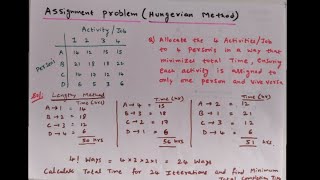 Assignment problem (Hungerian Method)
Activity/Job
1 2 3 4
Persons
A 14 12 15 15
B 21 18 18 22
C 14 17 12 14
D 6 5 3 6
Q) Allocate the 4 Activities/Job
to 4 persons in a way that
minimizes total Time, Ensuring
Each activity is assigned to
only one person and vice versa
Sol: Lengthy Method
Time (Hrs)
A→1 = 14
B→2 = 18
C→3 = 12
D→4 = 6
50 hrs
Time (Hr)
A→4 = 15
B→3 = 18
C→2 = 17
D→1 = 6
56 hrs
Time (Hr)
A→2 = 12
B→1 = 21
C→3 = 12
D→4 = 6
51 hrs
4! Ways = 4×3×2×1 = 24 Ways
Calculate Total Time for 24 Iterations and find Minimum
Total Completion Time